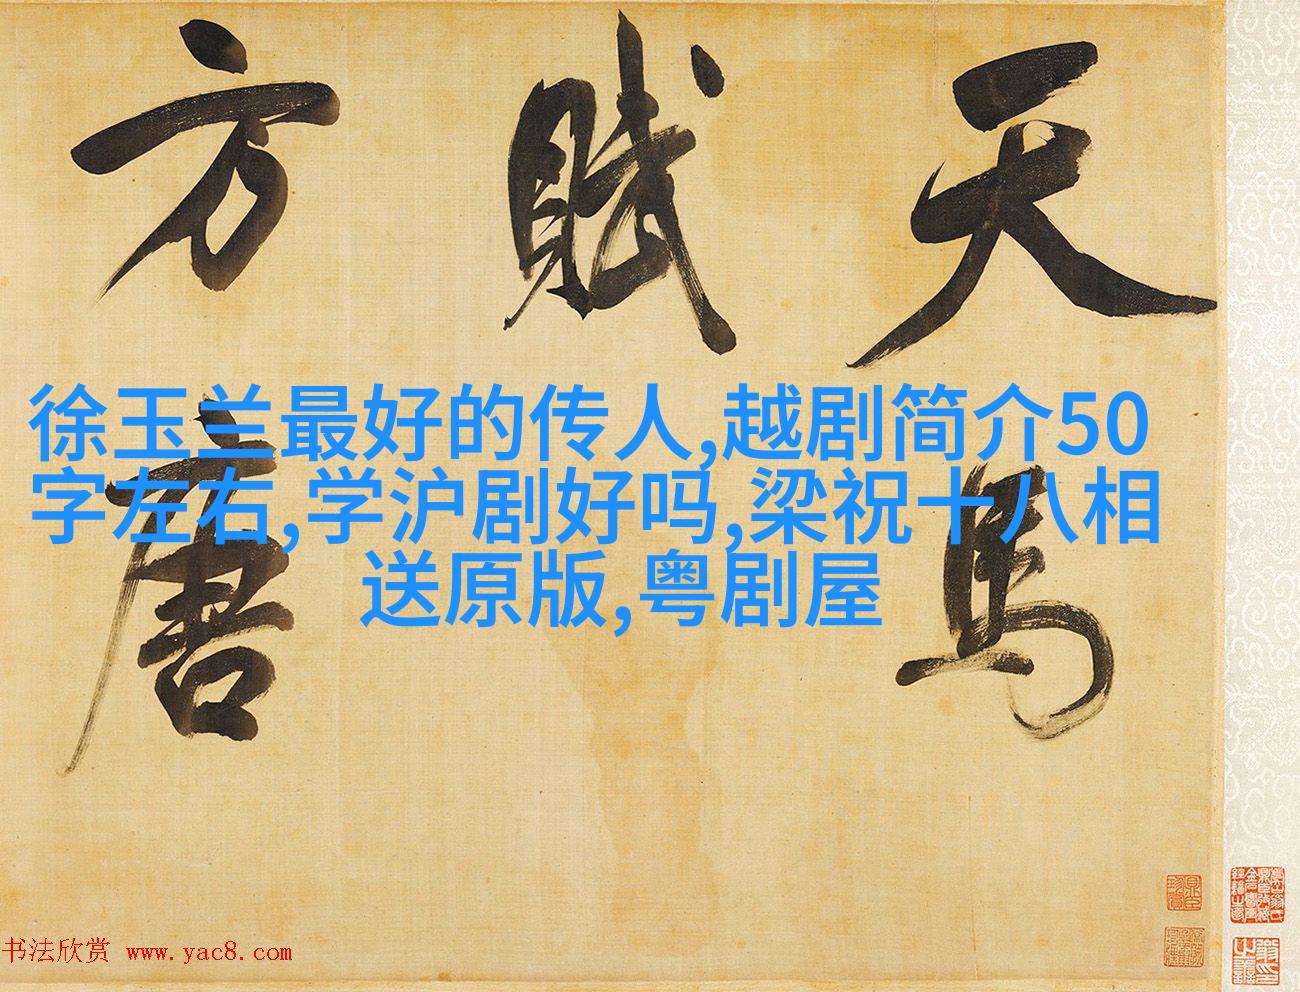 天馬
賦
方唐
徐玉兰最好的传人,越剧简介50
字左右,学沪剧好吗,梁祝十八相
送原版,粤剧屋
书法欣赏 www.yac8.com